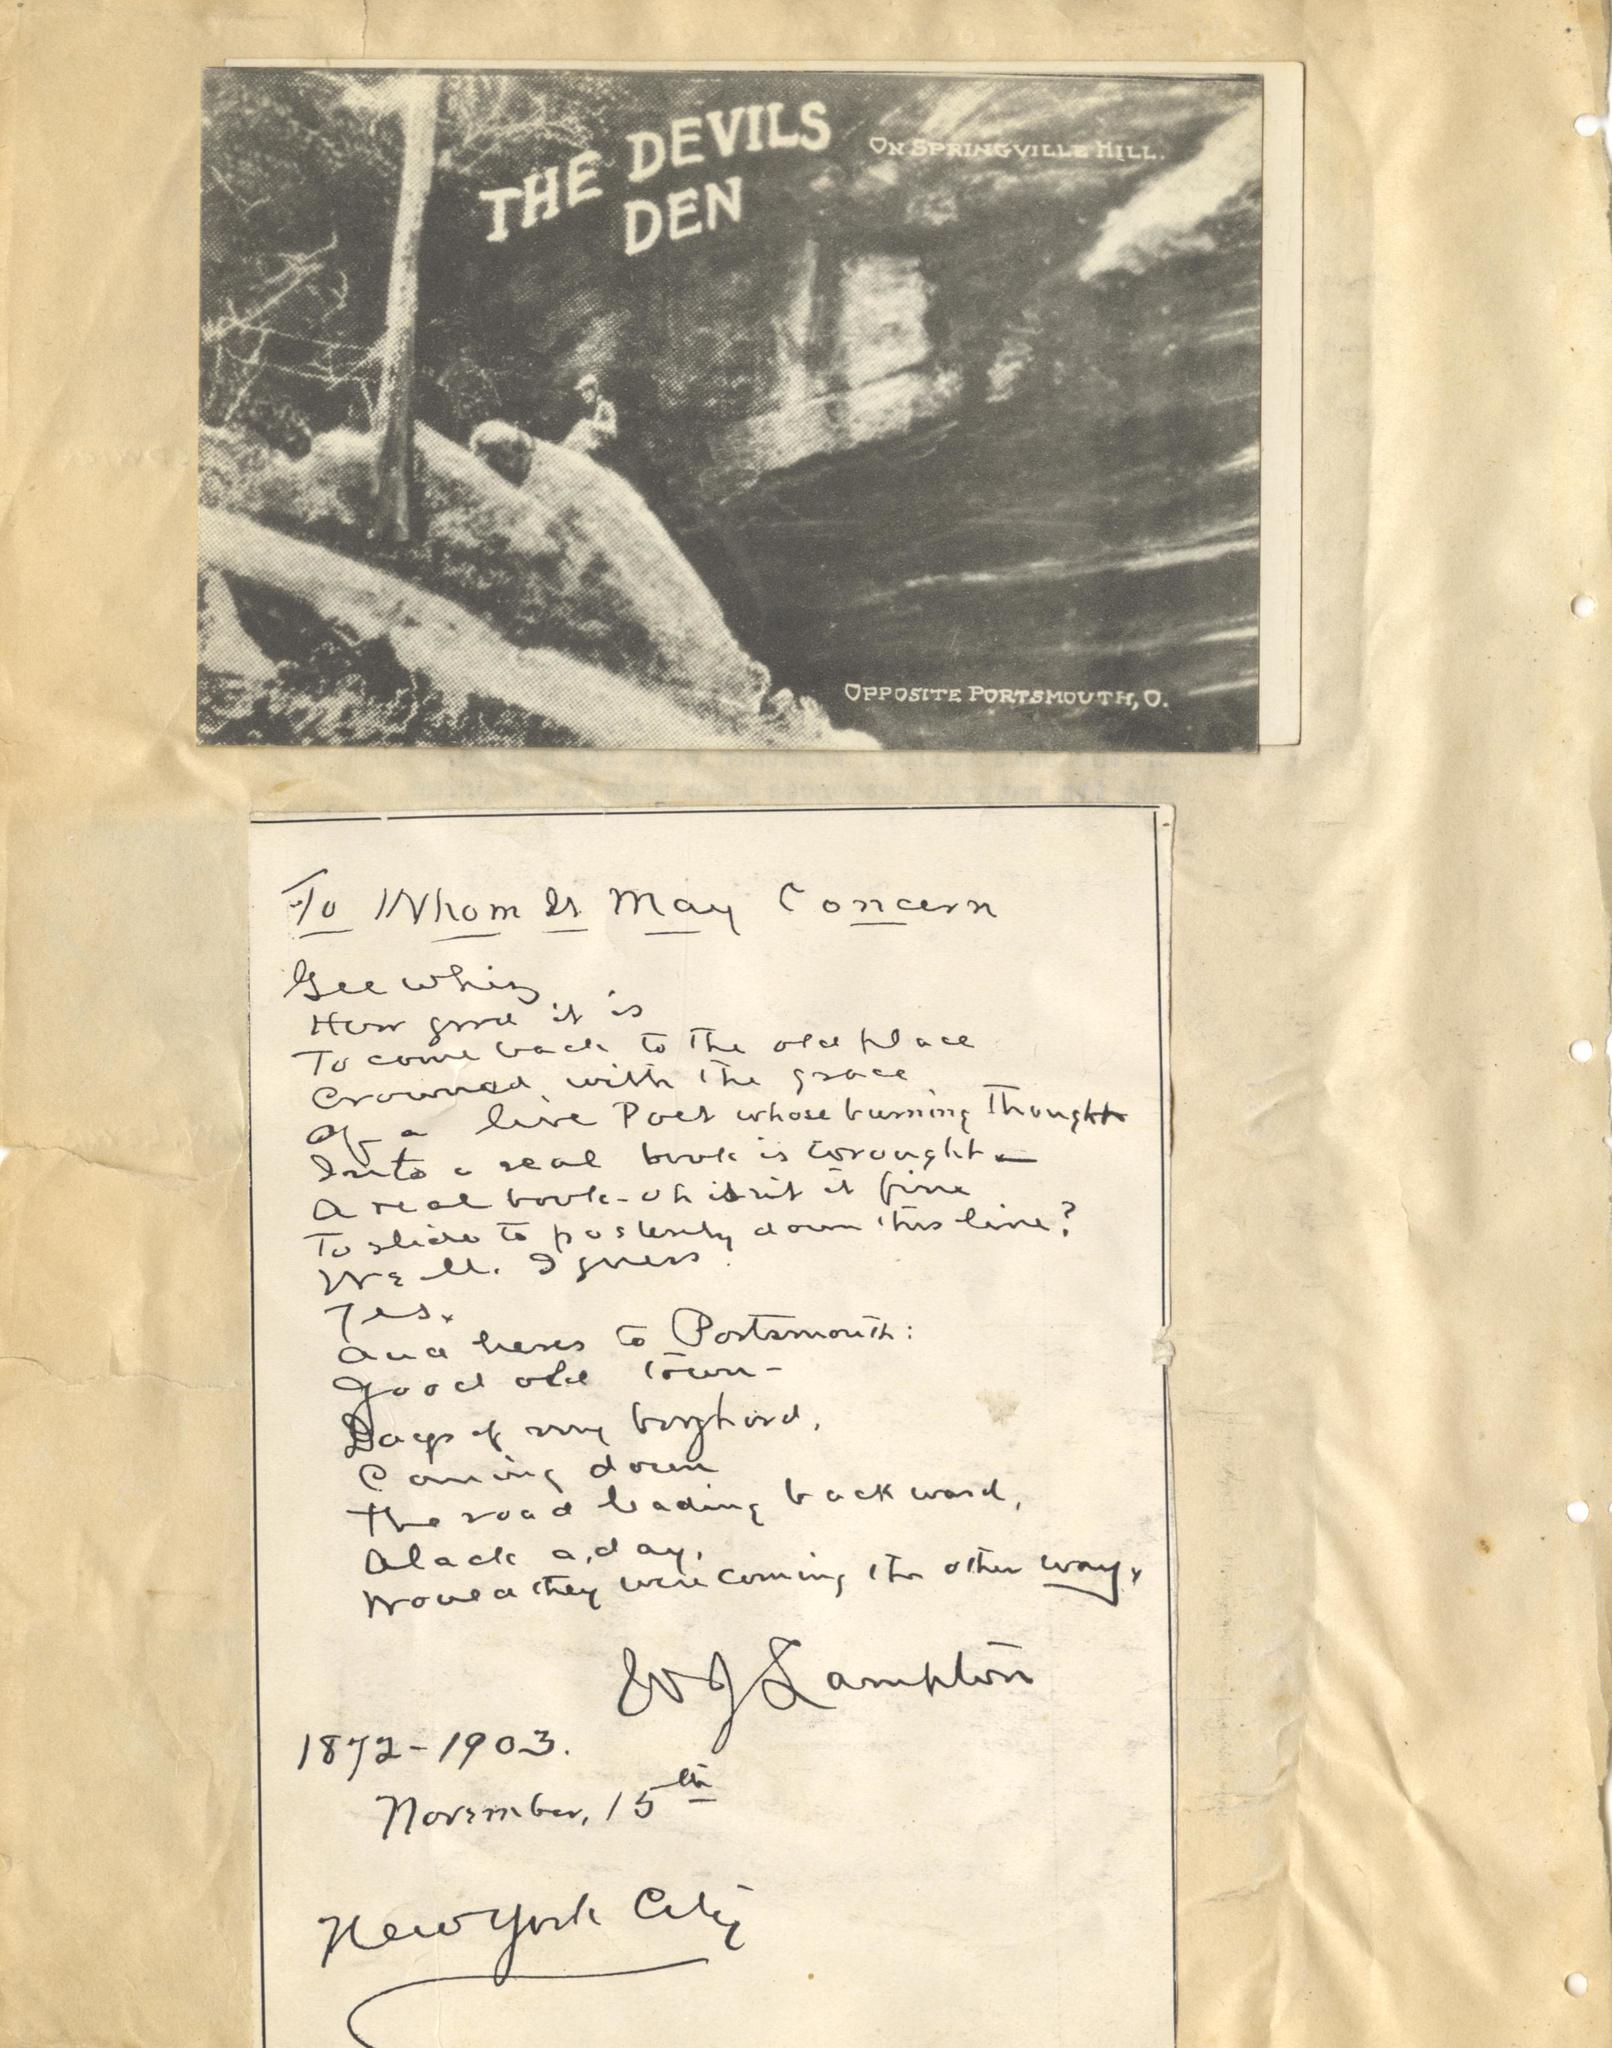 THE DEVILS
DEN
ON SPRINGVILLE HILL.
OPPOSITE PORTSMOUTH, O.
To Whom It May Concern
Gee whiz
How good it is
To come back to the old place
Crowned with the grace
Of a live Poet whose burning Thought
Into a real book is wrought—
A real book—oh isn't it fine
To slide to posterity down this line?
Well. I guess.
Yes.
And heres to Portsmouth:
Good old Town—
Days of my boyhood,
Coming down
The road leading backward,
Alack a, day,
Would they were coming the other way.
W J Lampton
1872-1903.
November, 15th
New York City